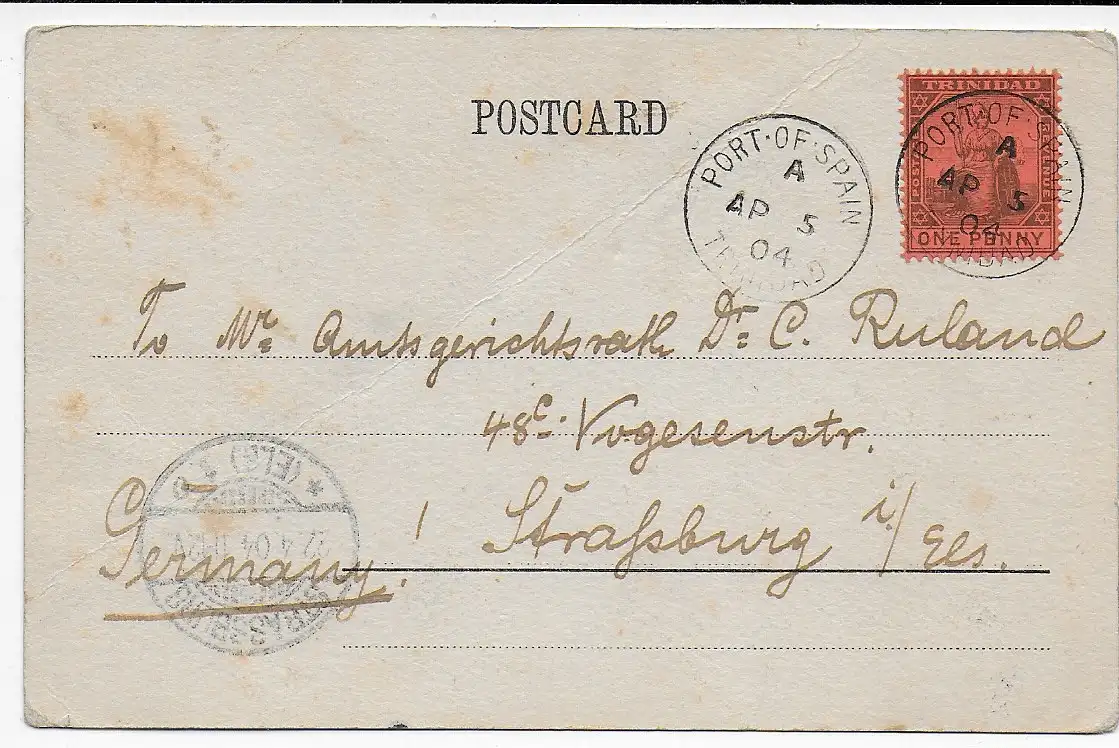 POSTCARD
PORT·OF·SPAIN
A
AP 5
04
TRINIDAD
TRINIDAD
POSTAGE
REVENUE
ONE PENNY
PORT·OF·SPAIN
A
AP 5
04
TRINIDAD
To Mr. Amtsgerichtsrath Dr. C. Ruland
48c. Vogesenstr.
Straßburg i/Els.
Germany!
STRASSBURG
22.4.04
(ELS)